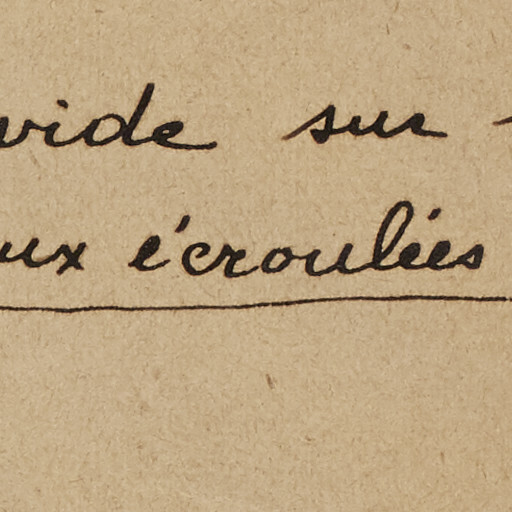 vide sur
ux écroulées